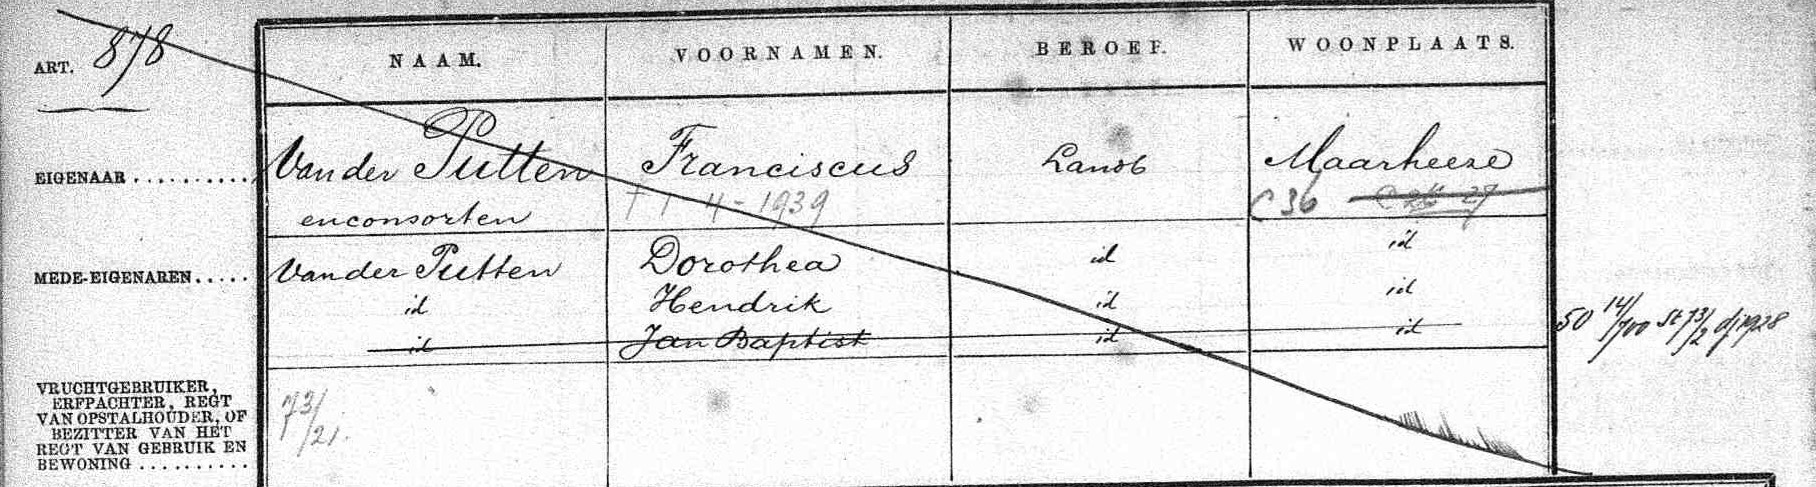 ART. 878
NAAM. VOORNAMEN. BEROEF. WOONPLAATS.
EIGENAAR .......... Van der Putten Franciscus Landb Maarheeze
enconsorten 4-1939 C 36
MEDE-EIGENAREN ..... Van der Putten Dorothea id id
id Hendrik id id
id Jan Baptist id id 50 14/700 st 73/2 dj 1928
VRUCHTGEBRUIKER,
ERFPACHTER, REGT
VAN OPSTALHOUDER, OF
BEZITTER VAN HET
REGT VAN GEBRUIK EN
BEWONING ..........
73/21.